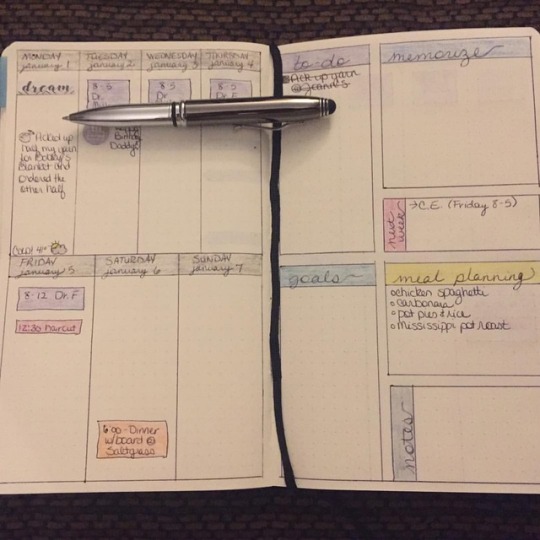 MONDAY
january 1
dream
Picked up
half my yarn
for Bobby's
Blanket and
Ordered the
other half
COLD! 41°
TUESDAY
january 2
8-5
Dr.
Happy
Birthday
Daddy!
WEDNESDAY
january 3
8-5
Dr.
THURSDAY
january 4
8-5
Dr. F
FRIDAY
january 5
8-12 Dr. F
12:30 haircut
SATURDAY
january 6
6:00 - Dinner
w/board @
Saltgrass
SUNDAY
january 7
to-do
Pick up yarn
@ Jeanne's
goals
memorize
next week
→ C.E. (Friday 8-5)
meal planning
chicken spaghetti
carbonara
pot pies & rice
mississippi pot roast
notes